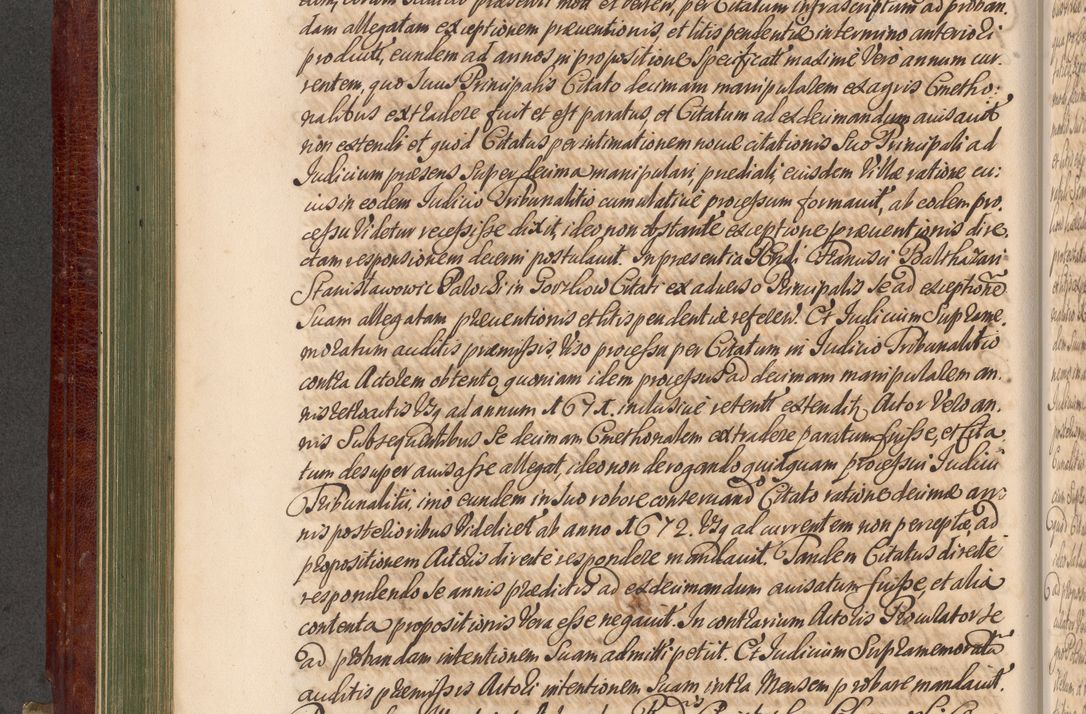 dam allegatam exceptionem præventionis, et litispendentiæ in termino anteriori
produxit, eundem ad annos in propositione specificat maxime Vero annum cur-
rentem, quo suus Principalis Citato decimam manipularem ex agris Cmetho-
nalibus extradere fuit et est paratus, et Citatum ad exdecimandum avisavit
non extendi et quod Citatus per intimationem novæ citationis Suo Principali ad
Judicium præsens Super decima manipulari prædiali, eiusdem Villæ ratione cu-
ius in eodem Judicio Tribunalitio cumulative processum formavit, ab eodem pro-
cessu Videtur recessisse dixit, ideo non obstante exceptione præventionis dire-
ctam responsionem decerni postulavit. In præsentia Rndi Francisci Balthazari
Stanisławowic Parochi in Gorzkow Citati ex adverso Principalis Se ad exceptione
suam allegatam præventionis et litispendentiæ referen. Et Judicium Suprame-
moratum auditis præmissis, Viso processu per Citatum in Judicio Tribunalitio
contra Actorem obtento, quoniam idem processus ad decimam manipularem an-
nis retroactis Usq ad annum 1671. inclusive retent extendit, Actor Vero an-
nis Subsequentibus Se decimam Cmethonalem extradere paratum fuisse, et Cita
tum desuper avisasse allegat, ideo non derogando quitquam processui Judicii
Tribunalitii, imo eundem in suo robore conservand Citato ratione decimæ an-
nis posterioribus Videlicet ab anno 1672. Usq ad currentem non perceptæ, ad
propositionem Actoris directe respondere mandavit. Tandem Citatus directe
respondendo Se annis prædictis ad exdecimandum avisatum fuisse, et alia
contenta propositionis Vera esse negavit. In contrarium Actoris Procurator se
ad probandam intentionem Suam admitti petiit. Et Judicium Supramemorat
auditis præmissis Actori intentionem Suam intra Mensem probare mandavit.